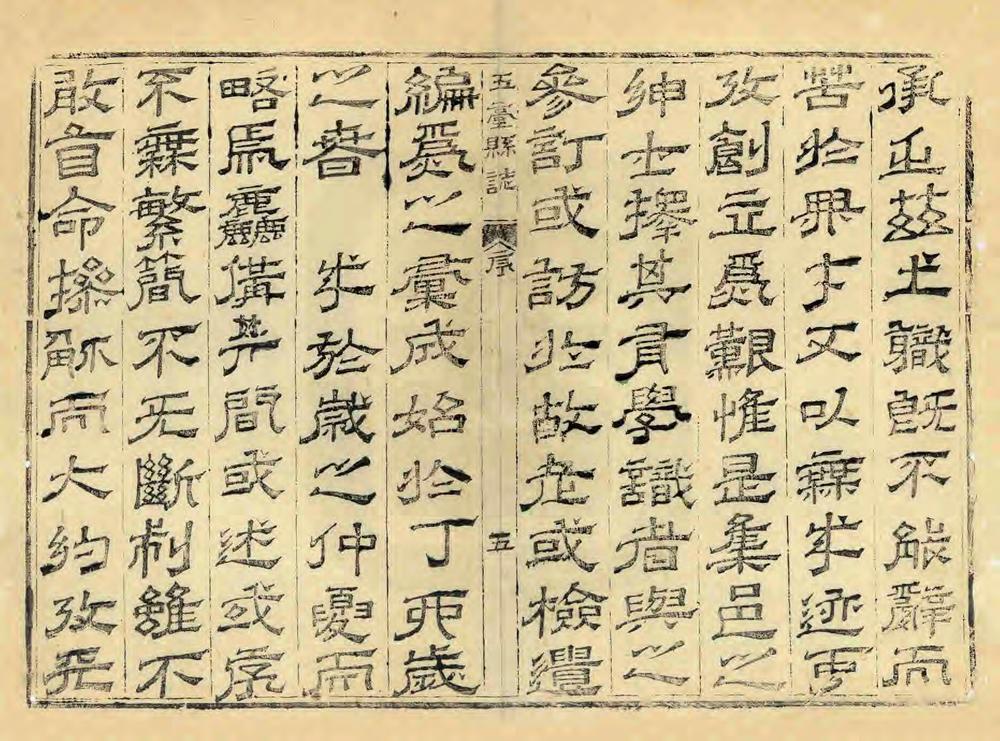 承乏茲土職既不能辭而
苦於畀才又以無成迹可
攷創立爲艱惟是集邑之
紳士擇其有學識者與之
參訂或訪於故老或檢遺
五臺縣誌 序 五
編爲之彙成始於丁卯歲
之春 成於歲之仲夏而
略焉麤備其間或述或
不無繁簡不无斷制雖不
敢自命操觚而大約攷